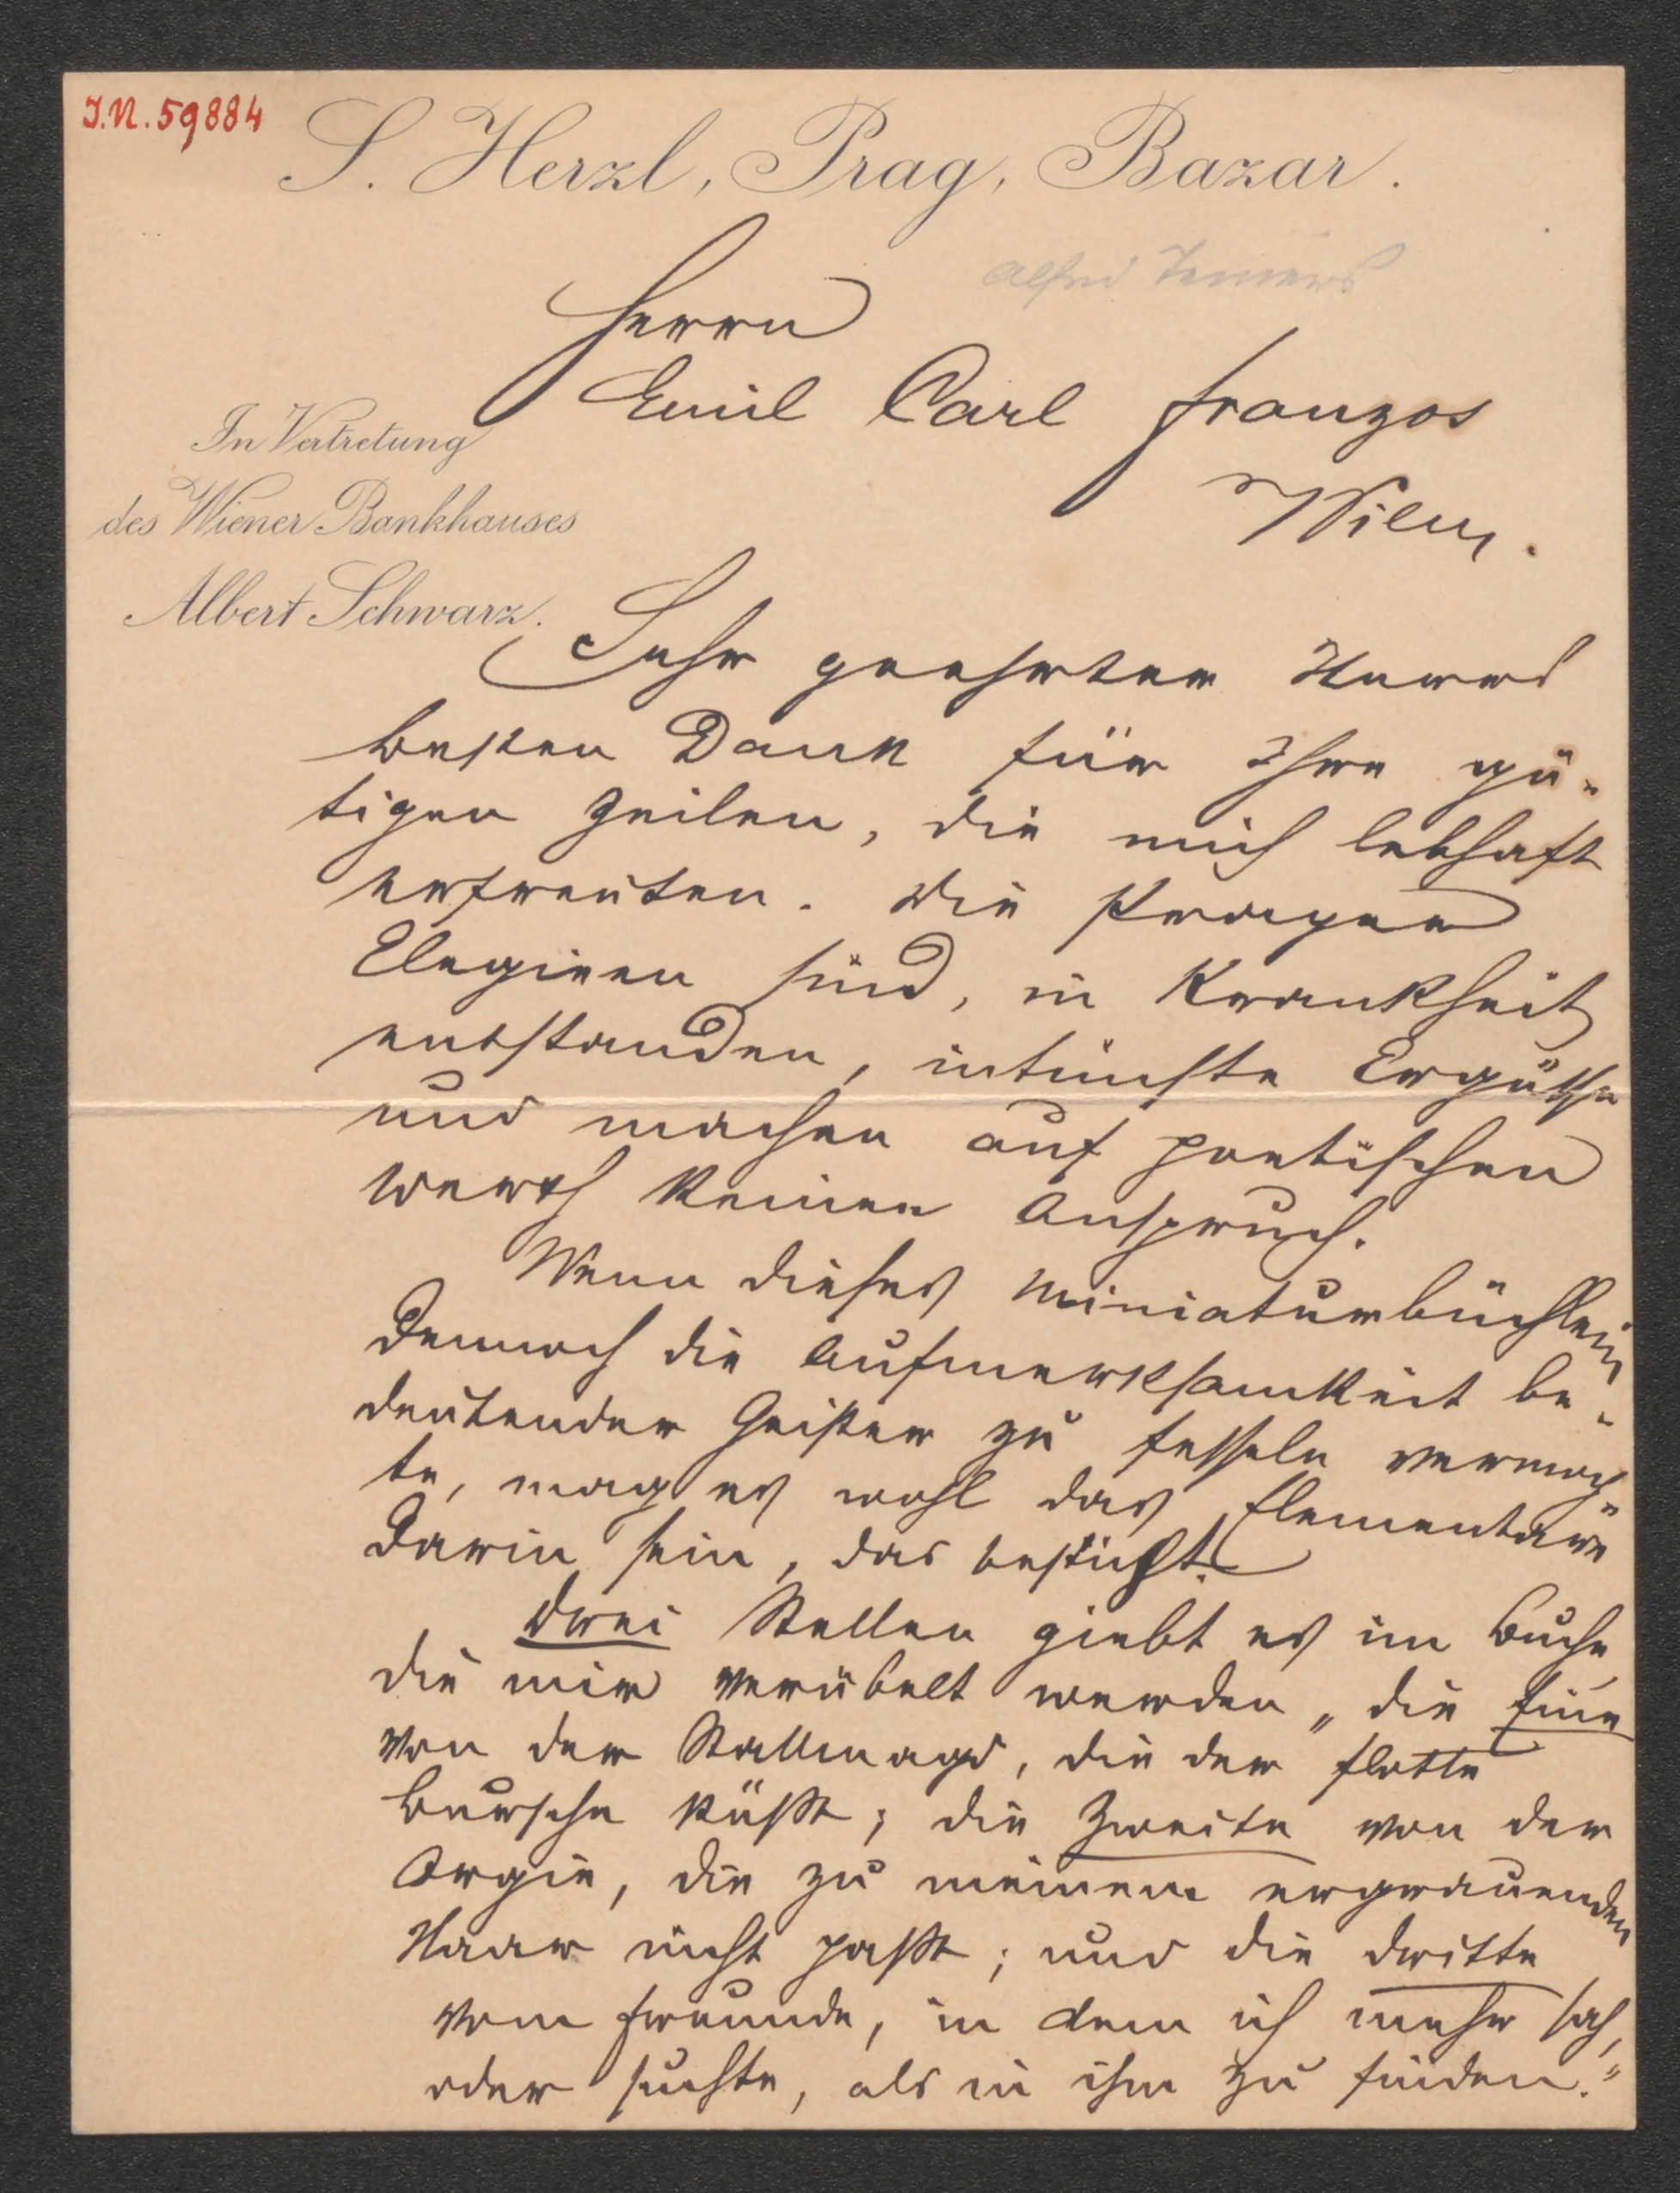 I.N. 59884
S. Herzl, Prag, Bazar.
Alfred
Herrn
Emil Carl Franzos
Wien.
In Vertretung
des Wiener Bankhauses
Albert Schwarz.
Sehr geehrter Herr!
besten Dank für Ihre gü-
tigen Zeilen, die mich lebhaft
erfreuten. Die Prager
Elegieen sind, in Krankheit
entstanden, intimste Ergüsse
und machen auf poetischen
Werth keinen Anspruch.
Wenn dieses Miniaturbüchlein
dennoch die Aufmerksamkeit be-
deutender Geister zu fesseln vermoch-
te, mag es wohl das Elementare
darin sein, das besticht.
Drei Stellen giebt es im Buche
die mir verübelt werden „die Eine
von der Stallmagd, die der flotte
Bursche küßt; die Zweite von der
Orgie, die zu meinem ergrauenden
Haar nicht paßt; und die dritte
vom Freunde, in dem ich mehr sah,
oder suchte, als in ihm zu finden."